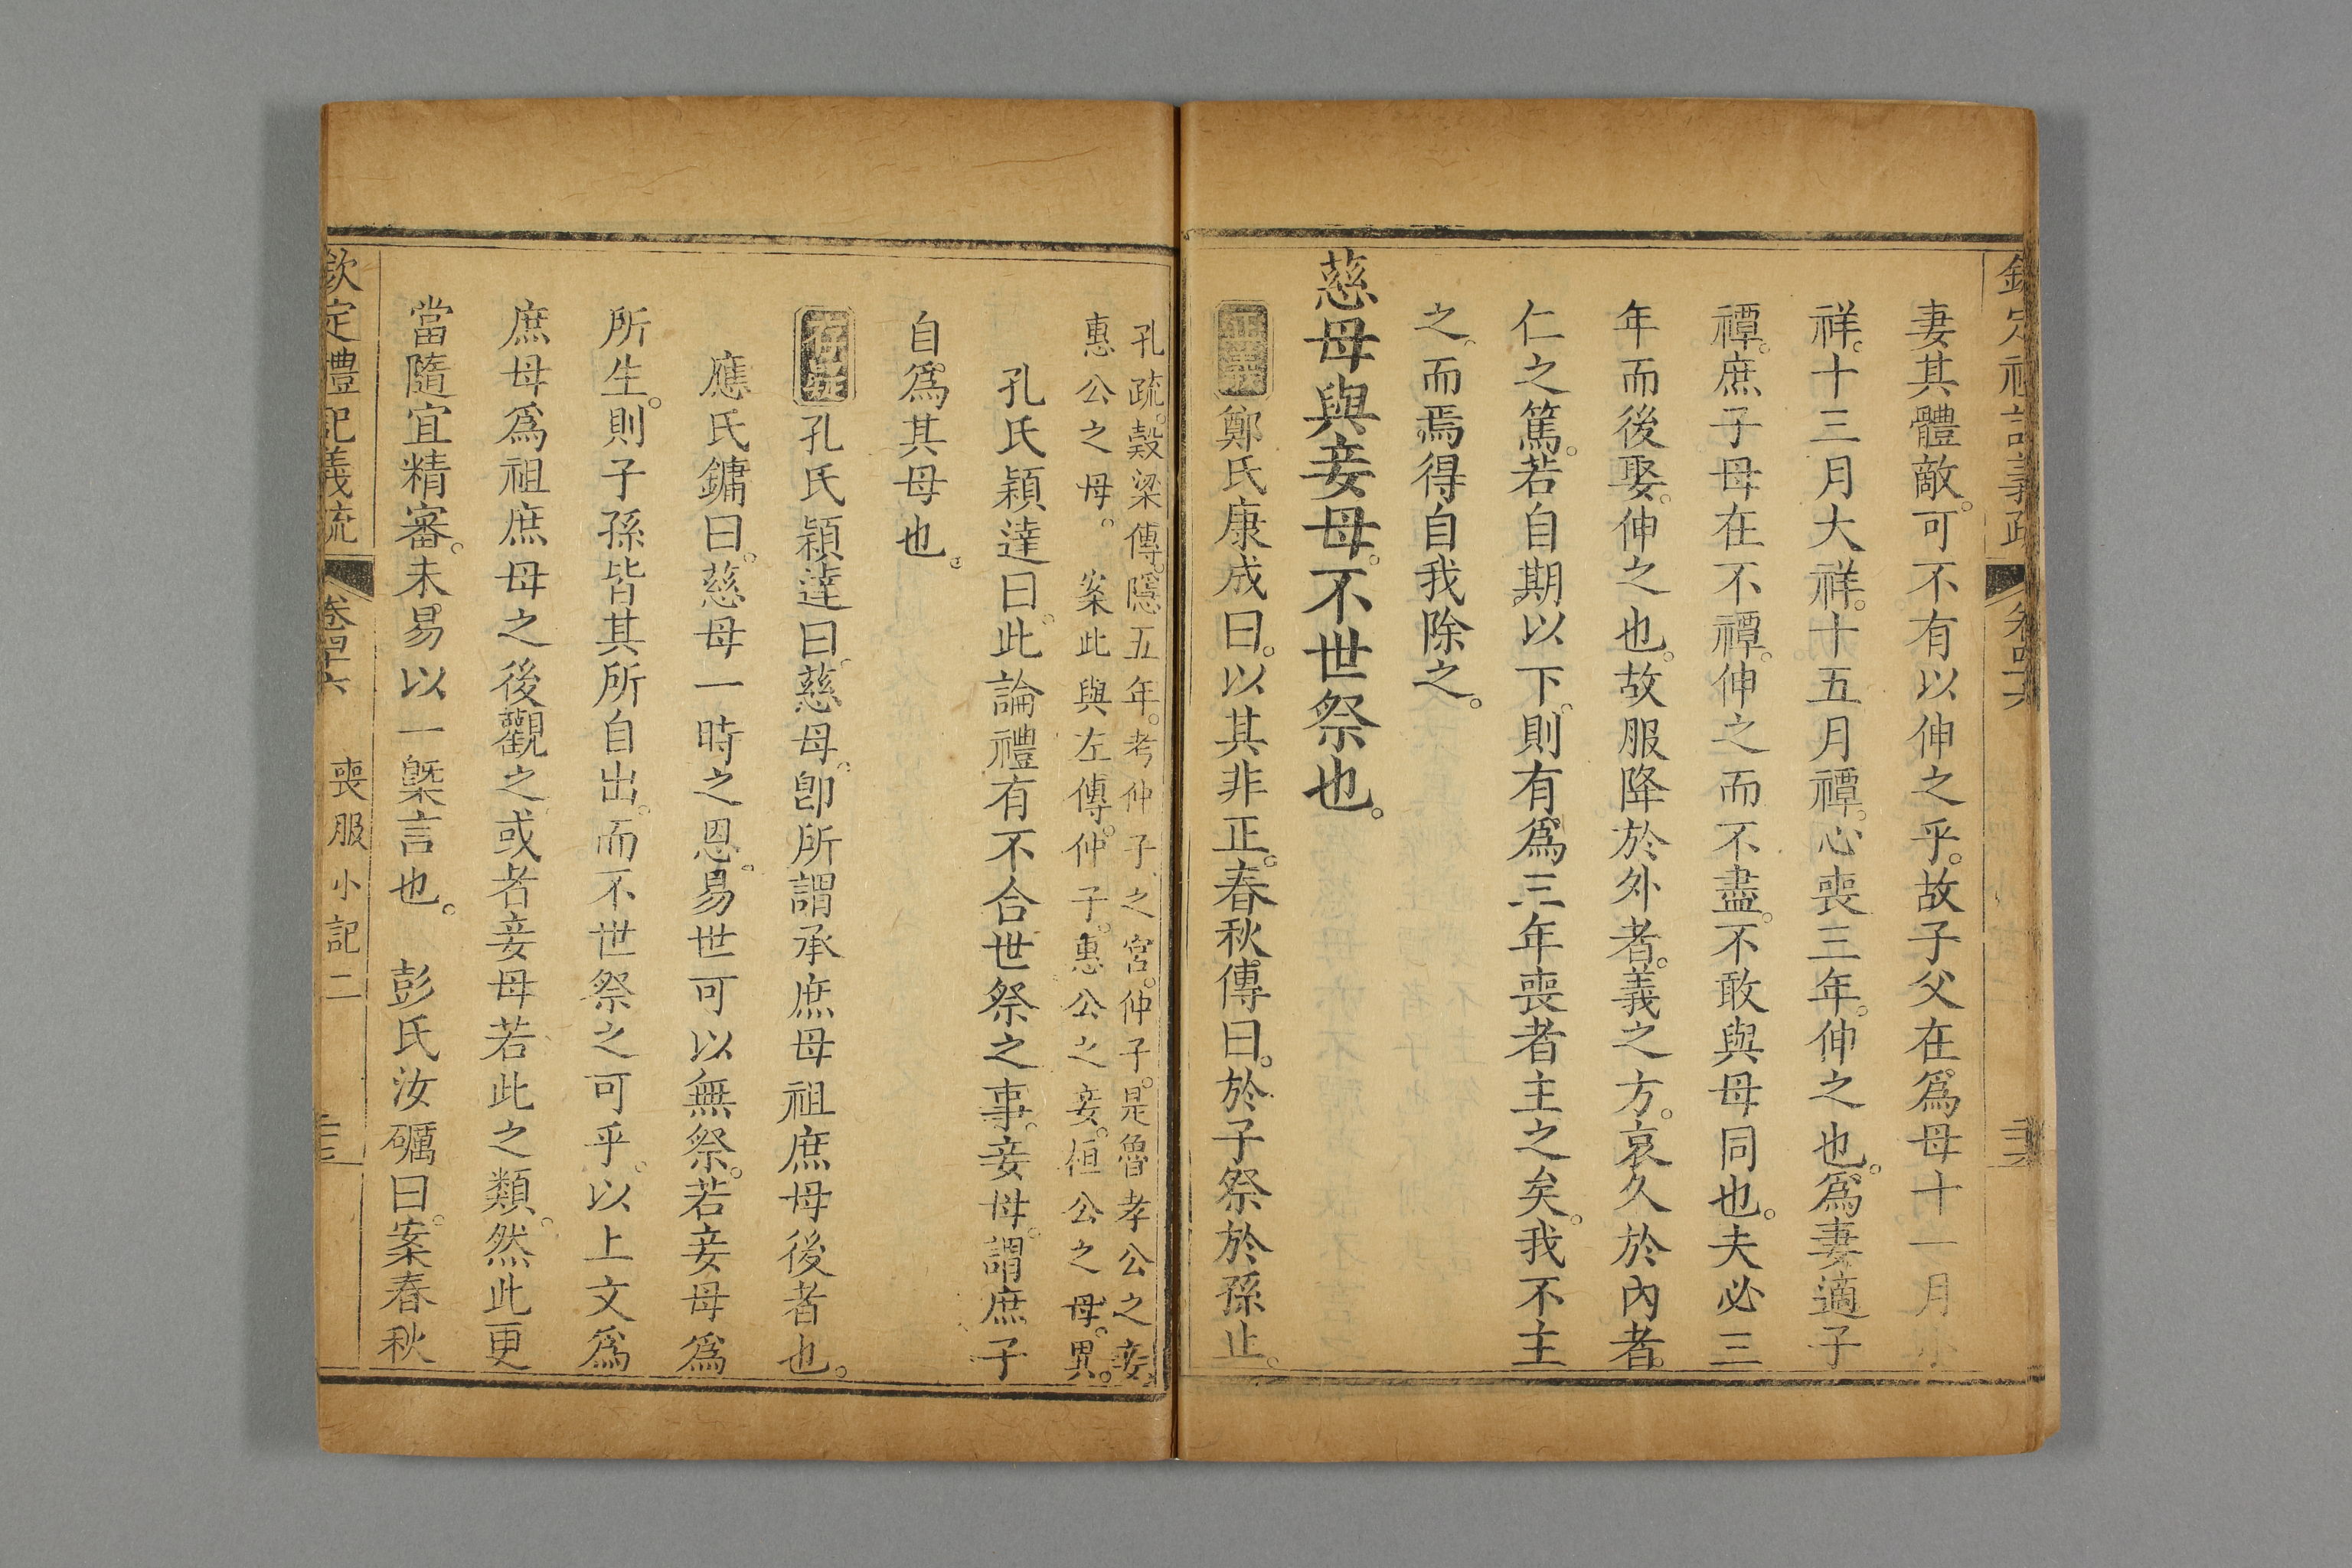 欽定禮記義疏 卷四十六
妻其體敵。可不有以伸之乎。故子父在。爲母十一月小
祥。十三月大祥。十五月禫。心喪三年。伸之也。爲妻適子
禫。庶子母在不禫。伸之而不盡。不敢與母同也。夫必三
年而後娶。伸之也。故服降於外者。義之方。哀久於內者。
仁之篤。若自期以下。則有爲三年喪者主之矣。我不主
之。而焉得自我除之。
慈母與妾母。不世祭也。
正義鄭氏康成曰。以其非正。春秋傳曰。於子祭於孫止。
孔疏。穀梁傳。隱五年。考仲子之宮。仲子。是魯孝公之妾。
惠公之母。 案此與左傳。仲子。惠公之妾。桓公之母。異。
孔氏穎達曰。此論禮有不合世祭之事。妾母。謂庶子
自爲其母也。
存疑孔氏穎達曰。慈母。卽所謂承庶母祖庶母後者也。
應氏鏞曰。慈母一時之恩。易世可以無祭。若妾母爲
所生。則子孫皆其所自出。而不世祭之可乎。以上文爲
庶母爲祖庶母之後觀之或者妾母若此之類。然此更
當隨宜精審。未易以一槩言也。 彭氏汝礪曰。案春秋
欽定禮記義疏 卷四十六 喪服小記二 三